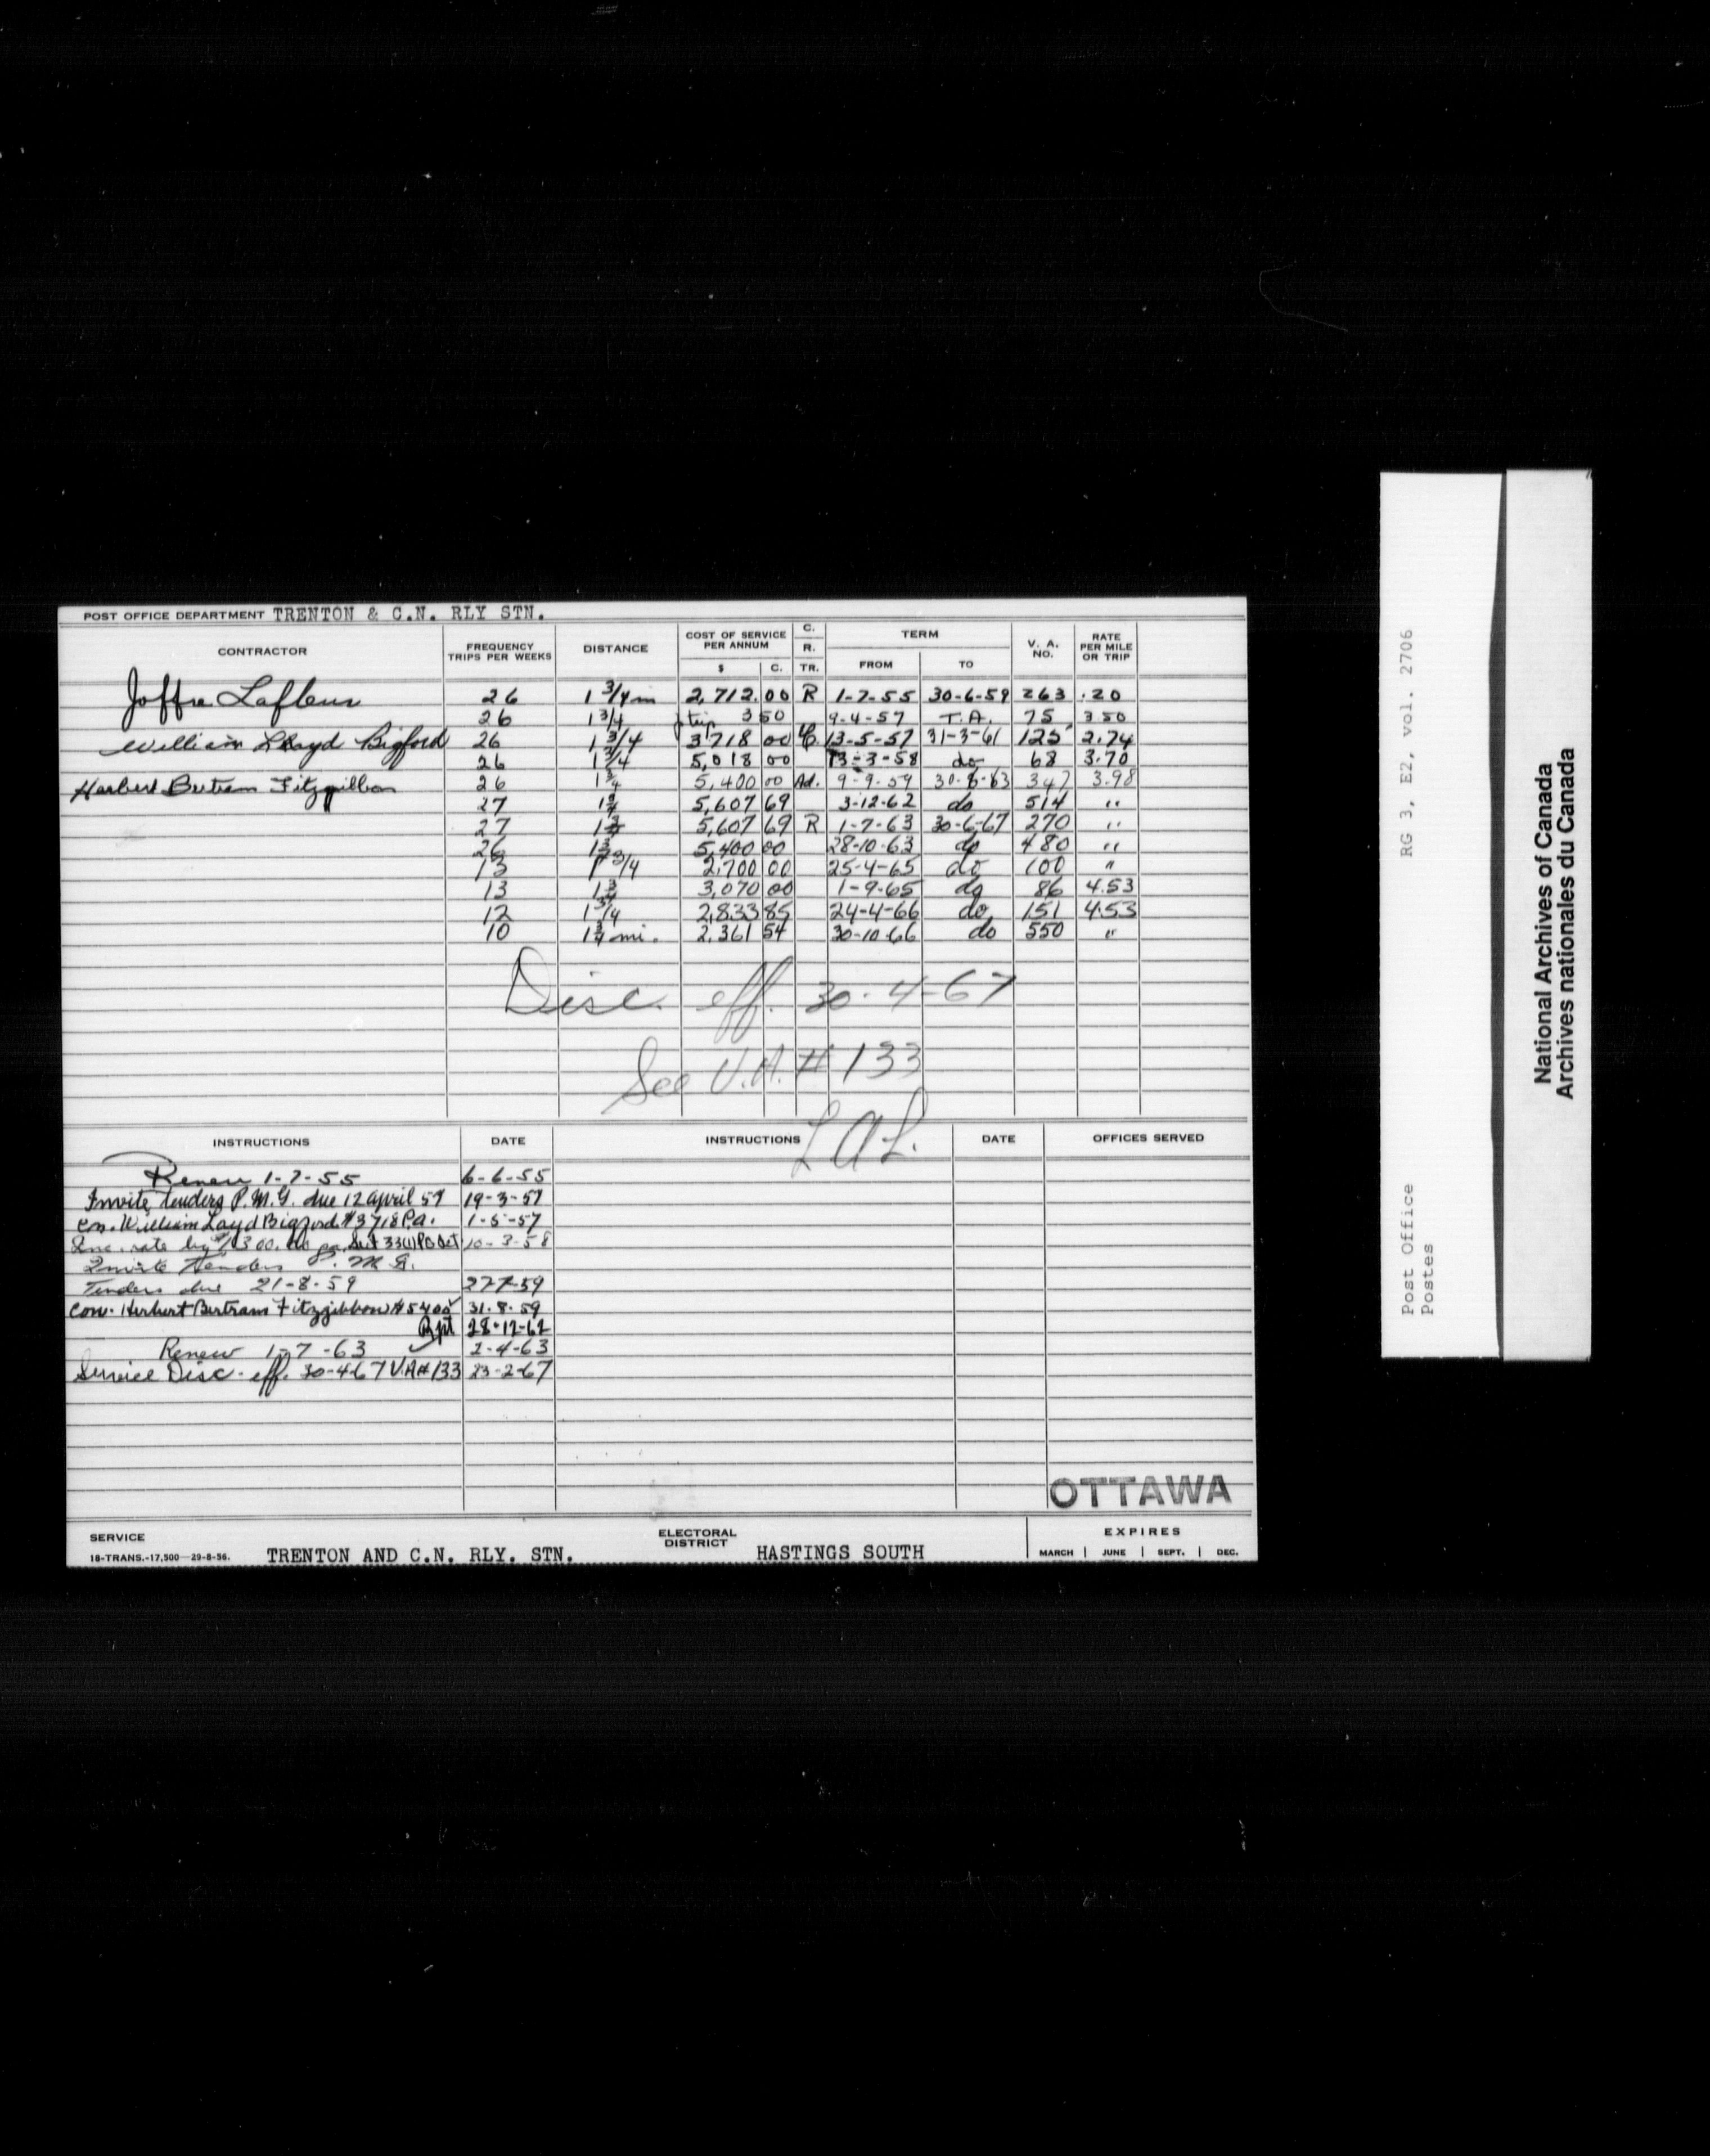 POST OFFICE DEPARTMENT TRENTON & C.N. RLY STN.
CONTRACTOR FREQUENCY TRIPS PER WEEKS DISTANCE COST OF SERVICE PER ANNUM $ C. C. R. TR. TERM FROM TO V. A. NO. RATE PER MILE OR TRIP
Joffre Lafleur 26 1 3/4 m 2,712.00 R 1-7-55 30-6-59 263 .20
26 1 3/4 trip 3 50 9-4-57 T.A. 75 3.50
William Lloyd Bigford 26 1 3/4 3718 00 C 13-5-57 31-3-61 125 2.74
26 1 3/4 5,018 00 13-3-58 do 68 3.70
Herbert Bertram Fitzgibbon 26 1 3/4 5,400 00 Ad. 9-9-59 30-6-63 347 3.98
27 1 3/4 5,607 69 3-12-62 do 514 "
27 1 3/4 5,607 69 R 1-7-63 30-6-67 270 "
26 1 3/4 5,400 00 28-10-63 do 480 "
13 1 3/4 2,700 00 25-4-65 do 100 "
13 1 3/4 3,070 00 1-9-65 do 86 4.53
12 1 3/4 2,833 85 24-4-66 do 151 4.53
10 1 3/4 mi. 2,361 54 30-10-66 do 550 "
Disc. eff. 30-4-67
See V.A. # 133
L A L.
INSTRUCTIONS DATE INSTRUCTIONS DATE OFFICES SERVED
Renew 1-7-55 6-6-55
Invite tenders P.M.G. due 12 April 57 19-3-57
Con. William Loyd Bigford $3718 P.a. 1-5-57
Inc. rate by $1300.00 pa. Sect 33(1) PO Act 10-3-58
Invite Tenders P.M.G.
Tenders due 21-8-59 27-7-59
Con. Herbert Bertram Fitzgibbon $5400 31-8-59
Rpt 28-12-62
Renew 1-7-63 2-4-63
Service Disc. eff. 30-4-67 V.A # 133 23-2-67
OTTAWA
SERVICE TRENTON AND C.N. RLY. STN. ELECTORAL DISTRICT HASTINGS SOUTH EXPIRES
18-TRANS.-17,500—29-8-56. MARCH | JUNE | SEPT. | DEC.
RG 3, E2, vol. 2706
Post Office
Postes
National Archives of Canada
Archives nationales du Canada